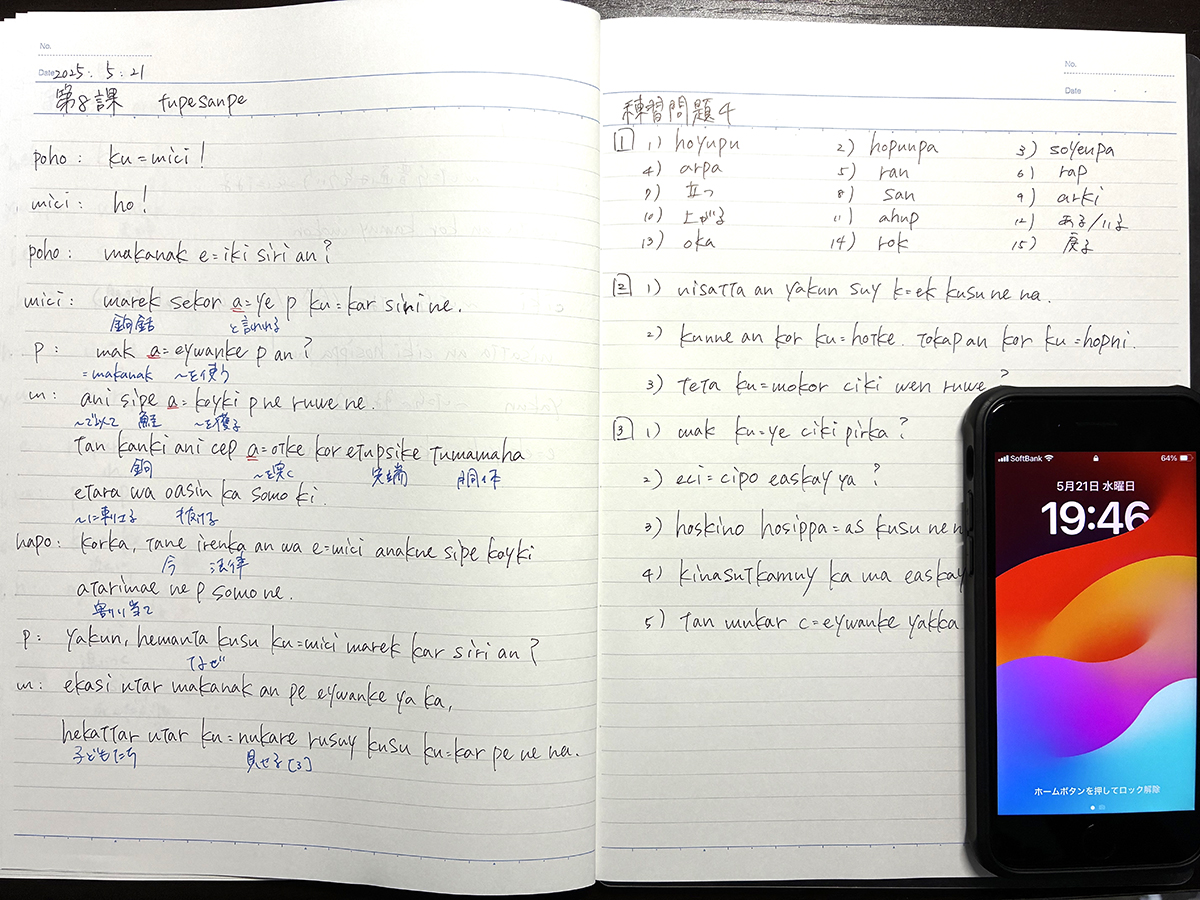 No.
Date 2025. 5. 21
第8課 fupesanpe
poho: ku=mici!
mici: ho!
poho: makanak e=iki siri an?
mici: marek sekor a=ye p ku=kar siri ne.
鉤銛 と言われる
p: mak a=eywanke p an?
=makanak ～を使う
m: ani sipe a=koyki p ne ruwe ne.
～で以って 鮭 ～を獲る
tan kanki ani cep a=otke kor etupsike tumamaha
鉤 ～を突く 先端 胴体
etara wa oasin ka somo ki.
～に刺さる 抜ける
hapo: korka, tane irenka an wa e=mici anakne sipe koyki
今 法律
atarimae ne p somo ne.
割り当て
p: yakun, hemanta kusu ku=mici marek kar siri an?
なぜ
m: ekasi utar makanak an pe eywanke ya ka,
hekattar utar ku=nukare rusuy kusu ku=kar pe ne na.
子どもたち 見せる[3]
No.
Date
練習問題4
1 1) hoyupu 2) hopunpa 3) soyenpa
4) arpa 5) ran 6) rap
7) 立つ 8) san 9) arki
10) 上がる 11) ahup 12) ある/いる
13) oka 14) rok 15) 戻る
2 1) nisatta an yakun suy k=ek kusu ne na.
2) kunne an kor ku=hotke. tokap an kor ku=hopni.
3) teta ku=mokor ciki wen ruwe ?
3 1) mak ku=ye ciki pirka?
2) eci=cipo easkay ya?
3) hoskino hosippa=as kusu ne n
4) kinasutkamuy ka ma easkay
5) tan mukar c=eywanke yakka
SoftBank 64%
5月21日 水曜日
19:46
ホームボタンを押してロック解除